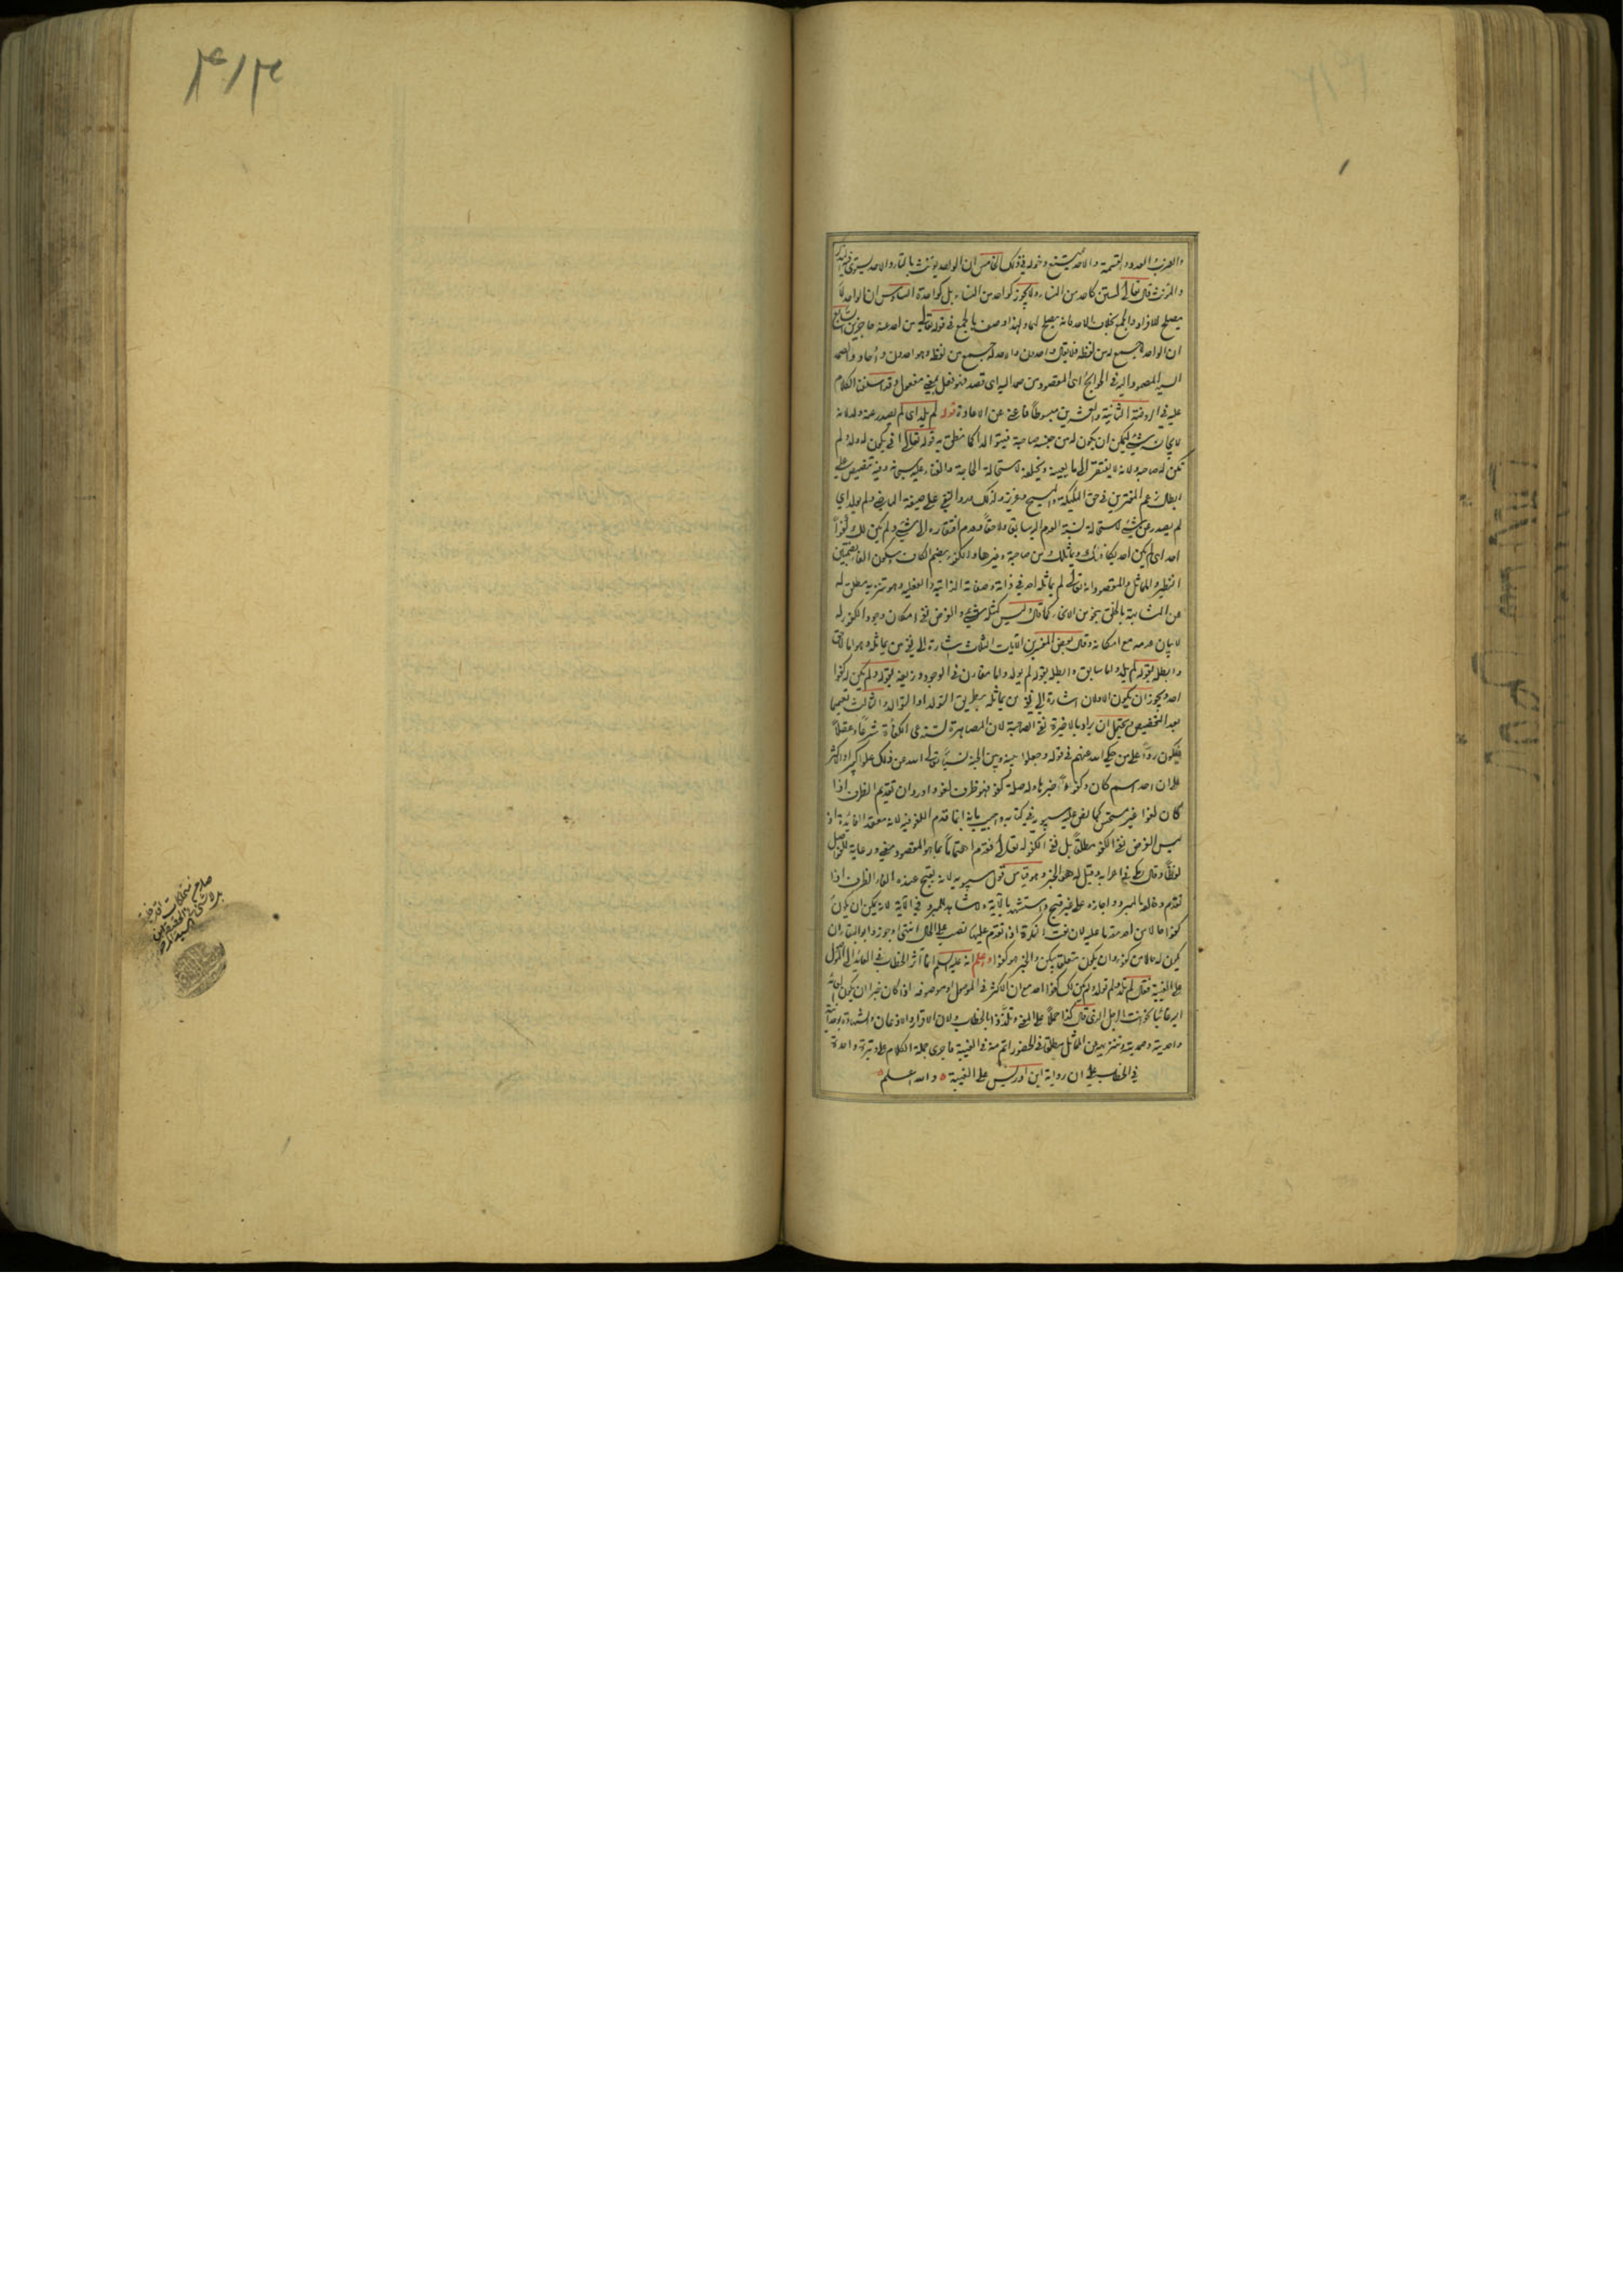 والضرب والعدد والقسمة والاحد يمتنع دخوله في ذلك الخامس ان الواحد يؤنث بالتاء والاحد يستوي فيه المذكر
والمؤنث قال تعالى لستن كاحد من النساء ولا يجوز كواحد من النساء بل كواحدة السادس ان الواحد لا
يصلح للافراد والجمع بخلاف الاحد فانه يصلح لهما ولهذا وصف بالجمع في قوله تعالى من احد عنه حاجزين السابع
ان الواحد لا جمع له من لفظه فلا يقال واحدون والاحد له جمع من لفظه وهو احدون وآحاد والصمد
السيد المصمود اليه في الحوايج اى المقصود من صمد اليه اى قصد فهو فعل بمعنى مفعول وقد سلف الكلام
عليه في الروضة الثانية والعشرين مبسوطا فاغنى عن الاعادة قوله لم يلد اى لم يصدر عنه ولد لانه
لا يجانسه شيء ليمكن ان يكون له من جنسه صاحبة فيتوالدا كما نطق به قوله تعالى انى يكون له ولد ولم
تكن له صاحبة ولانه لا يفتقر الى ما يعينه ويخلفه لاستحالة الحاجة والفناء عليه سبحانه وفيه تنصيص على
ابطال زعم المفترين في حق الملئكة والمسيح وعزير ولذلك ورد النفي على صيغة الماضي ولم يولد اي
لم يصدر عن شيء لاستحالة نسبة العدم اليه سابقا ولاحقا وعدم افتقاره الى شيء ولم يكن لك كفوا
احد اى لم يكن احد يكافئك ويماثلك من صاحبة وغيرها والكفو بضم الكاف وسكون الفاء وبضمتين
النظير والمماثل والمقصود انه تعالى لم يماثله احد في ذاته وصفاته الذاتية والفعلية وهو تنزيه مطلق له
عن المشابهة بالخلق بنحو من الانحاء كما قال ليس كمثله شيء والغرض نفي امكان وجود الكفو له
لا بيان عدمه مع امكانه وقال بعض المفسرين الآيات الثلاث اشارة الى نفي من يماثله وهو اما لاحق
وابطله بقوله لم يلد واما سابق وابطله بقوله لم يولد واما مقارن في الوجود وزيفه بقوله ولم يكن له كفوا
احد ويجوز ان يكون الاولان اشارة الى نفي من يماثله بطريق التولد او التوالد والثالث تعميما
بعد التخصيص ويحتمل ان يراد بالاخيرة نفي الصاحبة لان المصاهرة تستدعى الكفاءة شرعا وعقلا
فيكون ردا على من حكى الله عنهم في قوله وجعلوا بينه وبين الجنة نسبا تعالى الله عن ذلك علوا كبيرا والاكثر
على ان احد اسم كان وكفوا خبرها وله صلة كفو فهو ظرف لغو واورد ان تقديم الظرف اذا
كان لغوا غير مستحسن كما نص عليه سيبويه في كتابه واجيب بانه انما قدم اللغو فيه لانه معقد الفائدة اذ
ليس الغرض نفي الكفو مطلقا بل نفي الكفو له تعالى فقدم اهتماما بما هو المقصود معنى ورعاية للفواصل
لفظا وقال مكي في اعرابه وقيل له هو الخبر وهو قياس قول سيبويه لانه يقبح عنده الغاء الظرف اذا
تقدم وخالفه المبرد واجازه على غير قبح واستشهد بالآية ولا شاهد للمبرد في الآية لانه يمكن ان يكون
كفوا حالا من احد مقدما عليه لان نعت النكرة اذا تقدم عليها نصب على الحال انتهى وجوز ابو البقاء ان
يكون له حالا من كفو وان يكون متعلقا بيكن والخبر هو كفوا واعلم انه عليه السلم انما آثر الخطاب في العائد الى الموصول
على الغيبة فقال لم تلد ولم تولد ولم يكن لك كفوا احد مع ان الاكثر في الموصول او موصوفه اذا كان خبرا ان يكون العائد
اليه غائبا نحو انت الرجل الذى قال كذا حملا على المعنى وتلذذا بالخطاب ولان الاقرار والاذعان والشهادة بوحدانيته
واحديته وصمديته وتنزيهه عن المماثل مطلقا في الحضور اتم منه في الغيبة فاجرى جملة الكلام على وتيرة واحدة
في الخطاب على ان رواية ابن ادريس على الغيبة والله اعلم